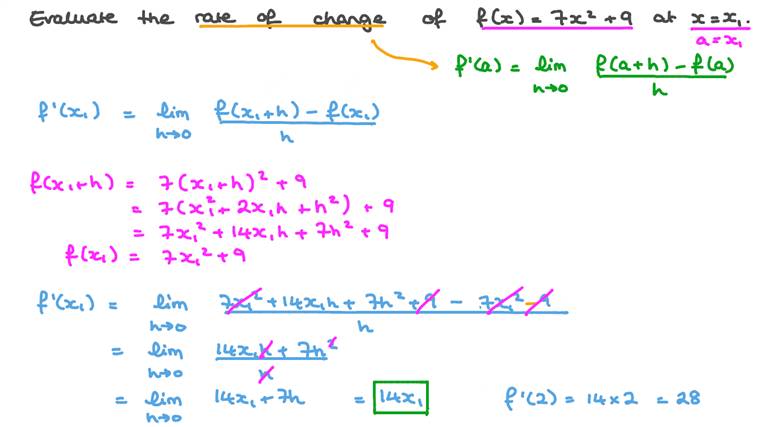 Evaluate the rate of change of f(x) = 7x² + 9 at x = x₁.
a = x₁
f'(a) = lim h→0 (f(a+h) − f(a))/h
f'(x₁) = lim h→0 (f(x₁+h) − f(x₁))/h
f(x₁+h) = 7(x₁+h)² + 9
= 7(x₁² + 2x₁h + h²) + 9
= 7x₁² + 14x₁h + 7h² + 9
f(x₁) = 7x₁² + 9
f'(x₁) = lim h→0 (7x₁² + 14x₁h + 7h² + 9 − 7x₁² − 9)/h
= lim h→0 (14x₁h + 7h²)/h
= lim h→0 14x₁ + 7h = 14x₁ f'(2) = 14×2 = 28